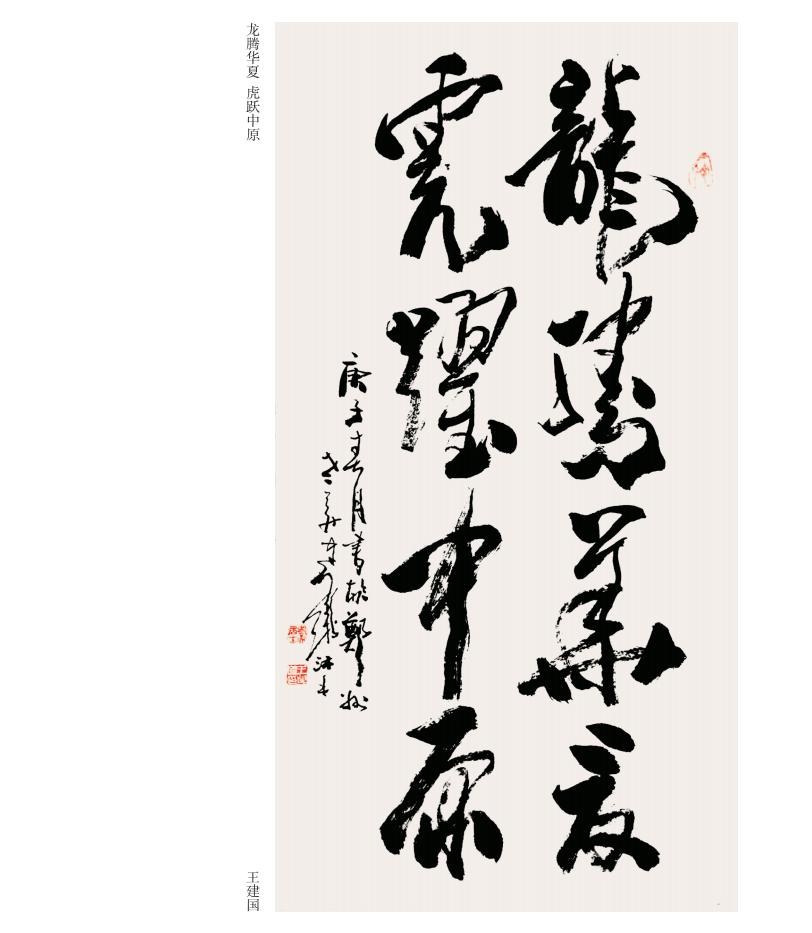 龍騰華夏
虎躍中原
庚子春月書於鄭州
龙腾华夏 虎跃中原
王建国